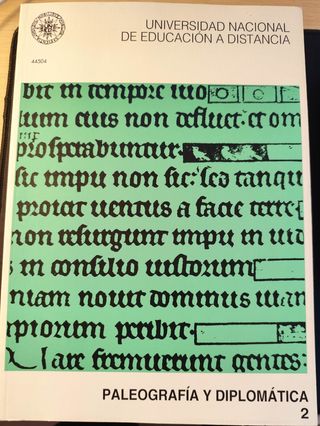 UNIVERSIDAD NACIONAL
DE EDUCACIÓN A DISTANCIA
44504
bit in tempore suo
ium eius non defluet: et om
prosperabuntur.
sic impii non sic: sed tanqu
proiat uentus a facie terre
non resurgunt impii in iud
s in consilio iustorum
niam nouit dominus uian
mpiorum peribit.
are fremuerunt gentes:
PALEOGRAFÍA Y DIPLOMÁTICA
2